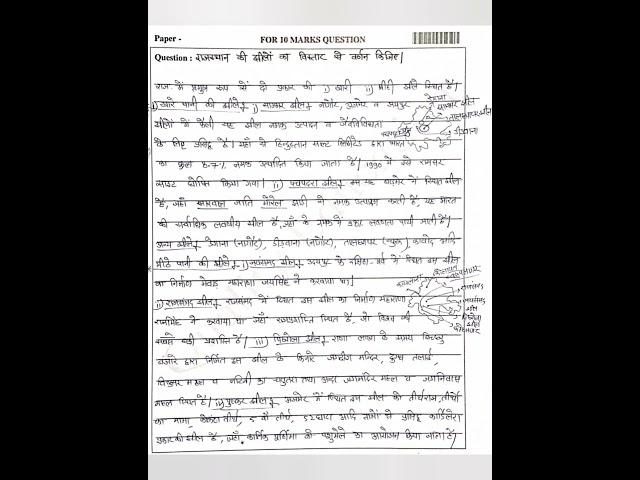 Paper -
FOR 10 MARKS QUESTION
Question : राजस्थान की झीलों का विस्तार से वर्णन किजिए।
राज. में प्रमुख रूप से दो प्रकार की i) खारी ii) मीठी झीले स्थित है।
i) खारे पानी की झीले:- i) सांभर झील:- नागौर, अजमेर व जयपुर
जिलों में फैली यह झील नमक उत्पादन व जैवविविधता
के लिए प्रसिद्ध है। यहाँ से हिन्दुस्तान साल्ट लिमिटेड द्वारा भारत
का कुल 8.7% नमक उत्पादित किया जाता है। 1990 में इसे रामसर
साइट घोषित किया गया। ii) पचपदरा झील:- यह बाड़मेर में स्थित झील
है, जहाँ खारवाल जाति मोरली झाड़ी से नमक उत्पादन करती है, यह भारत
की सर्वाधिक लवणीय झील है, जहाँ के नमक में लवणता पायी जाती है।
अन्य झीले:- डेगाना (नागौर), डीडवाना (नागौर), तालछापर (चुरू), कावोद आदि
मीठे पानी की झीले:- i) जयसमंद झील:- उदयपुर के दक्षिण-पूर्व में स्थित इस झील
का निर्माण मेवाड़ महाराणा जयसिंह ने करवाया था।
ii) राजसमंद झील:- राजसमंद में स्थित इस झील का निर्माण महाराणा
राजसिंह ने करवाया था जहाँ राजप्रशस्ति स्थित है, जो विश्व की
सबसे बड़ी प्रशस्ति है। iii) पिछोला झील:- राणा लाखा के समय पिच्छू
बंजारे द्वारा निर्मित इस झील के किनारे जगदीश मन्दिर, दुध तलाई,
सिटी महल व नटिनी का चबुतरा तथा अन्दर जगमंदिर महल व जगनिवास
महल स्थित है। iv) पुष्कर झील:- अजमेर में स्थित इस झील को तीर्थराज, तीर्थों
का मामा, कोंकण तीर्थ, 5 वाँ तीर्थ, 52 घाट आदि नामों से प्रसिद्ध
झील है, जहाँ कार्तिक पूर्णिमा को पशुमेले का आयोजन किया जाता है।
सांभर झील
तालछापर झील
डीडवाना